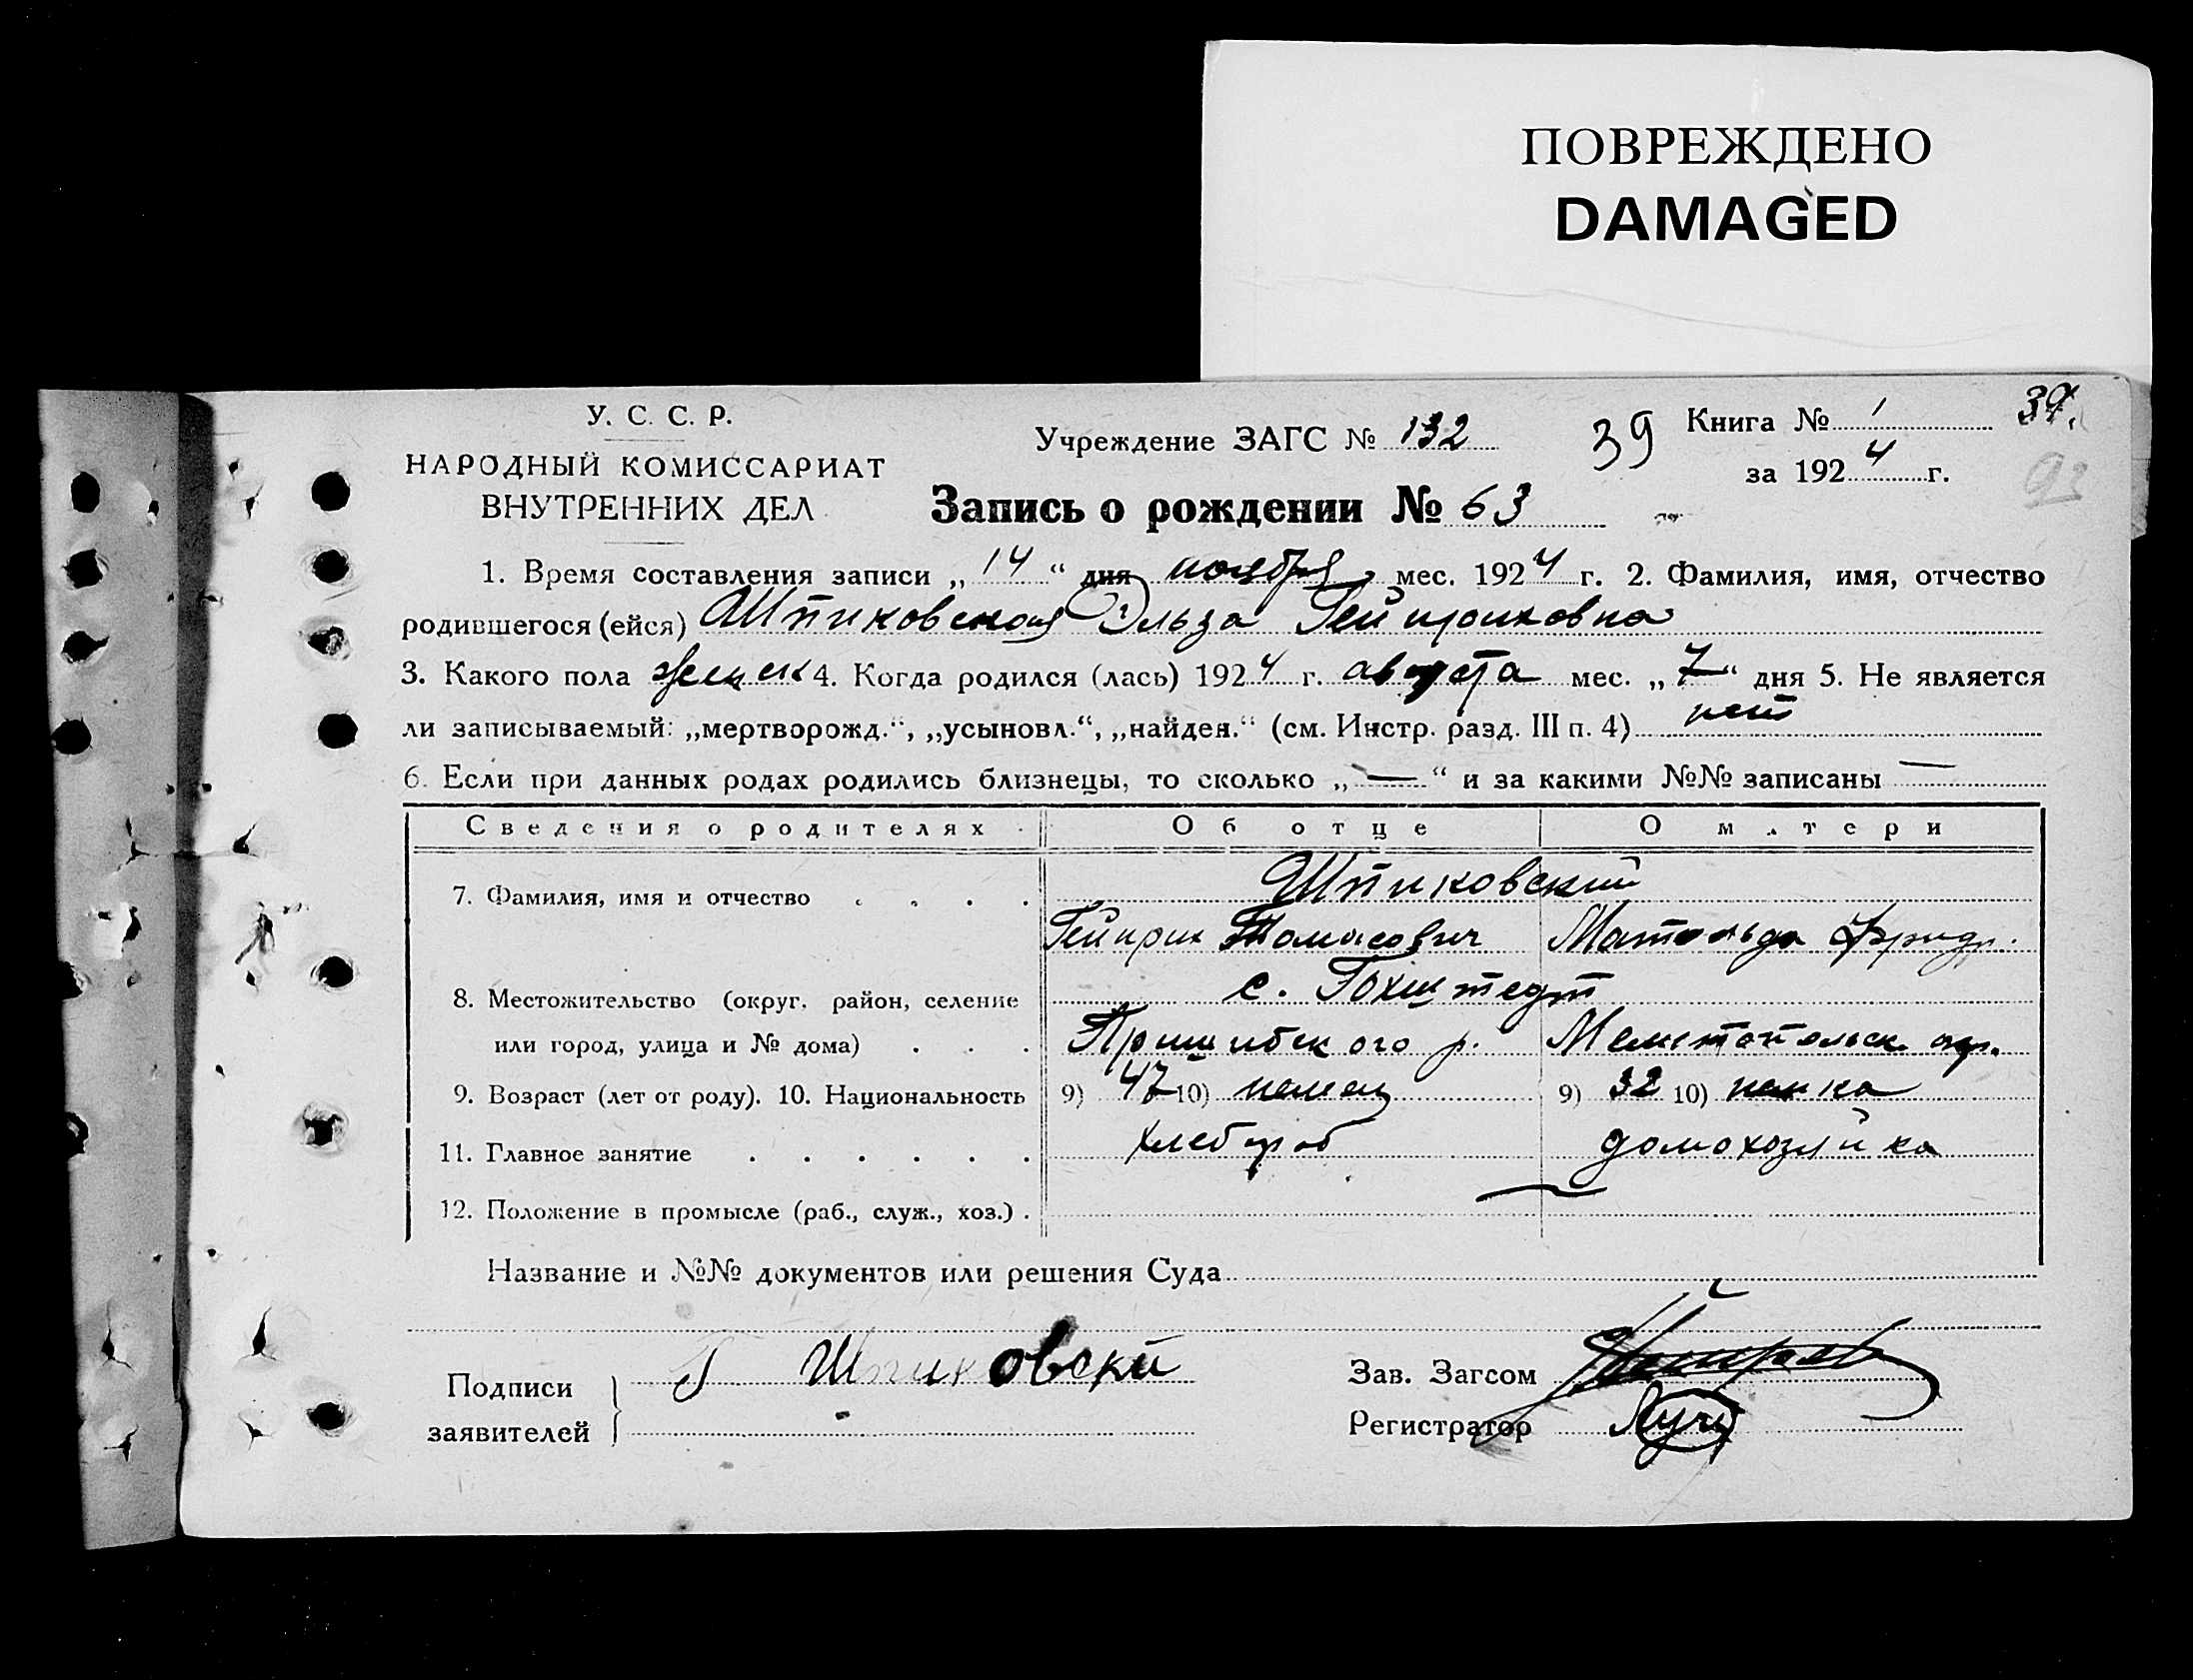 ПОВРЕЖДЕНО
DAMAGED
У. С. С. Р.
НАРОДНЫЙ КОМИССАРИАТ
ВНУТРЕННИХ ДЕЛ
Учреждение ЗАГС № 132
39
Книга № 1
39.
за 1924 г.
93
Запись о рождении № 63
1. Время составления записи „14“ дня ноября мес. 1924 г. 2. Фамилия, имя, отчество
родившегося (ейся) Штиковская Эльза Гейнриховна
3. Какого пола женск 4. Когда родился (лась) 1924 г. августа мес. „7“ дня 5. Не является
ли записываемый: „мертворожд.“, „усыновл.“, „найден.“ (см. Инстр. разд. III п. 4) нет
6. Если при данных родах родились близнецы, то сколько „—“ и за какими №№ записаны —
Сведения о родителях Об отце О матери
7. Фамилия, имя и отчество . . . . Штиковский
Гейнрих Томасович Матильда Фридр.
8. Местожительство (округ, район, селение с. Гохштедт
или город, улица и № дома) . . . Пришибского р. Мелитопольск. окр.
9. Возраст (лет от роду). 10. Национальность 9) 47 10) немец 9) 32 10) немка
11. Главное занятие . . . . . . хлебороб домохозяйка
12. Положение в промысле (раб., служ., хоз.) . —
Название и №№ документов или решения Суда
Подписи
заявителей
Г Штиковский
Зав. Загсом
Регистратор